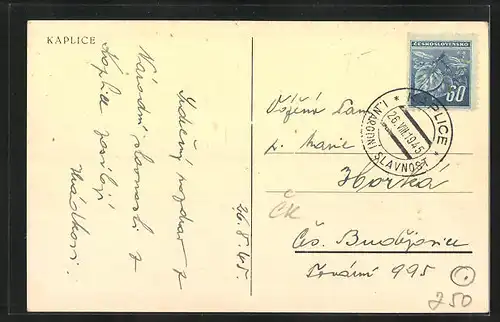 KAPLICE
Srdečný pozdrav z
Národní slavnosti z
Kaplice zasílají
Hrádkovi.
26.8.45.
ČESKOSLOVENSKO
60
* KAPLICE *
I. NÁRODNÍ SLAVNOST
26.VIII.1945
Vážená Paní
p. Marie
Horká
ČK
Čes. Budějovice
Tovární 995
250